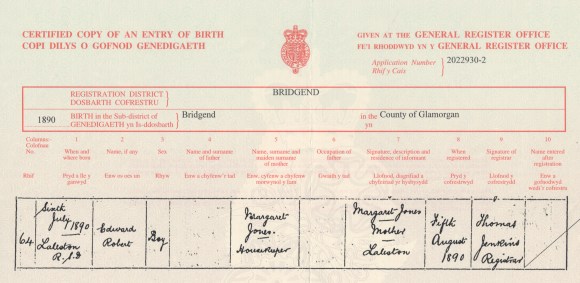 CERTIFIED COPY OF AN ENTRY OF BIRTH
COPI DILYS O GOFNOD GENEDIGAETH
GIVEN AT THE GENERAL REGISTER OFFICE
FE'I RHODDWYD YN Y GENERAL REGISTER OFFICE
Application Number 2022930-2
Rhif y Cais
REGISTRATION DISTRICT BRIDGEND
DOSBARTH COFRESTRU
1890 BIRTH in the Sub-district of Bridgend in the County of Glamorgan
GENEDIGAETH yn Is-ddosbarth yn
Columns:- 1 2 3 4 5 6 7 8 9 10
Colofnau
No. When and where born Name, if any Sex Name and surname of father Name, surname and maiden surname of mother Occupation of father Signature, description and residence of informant When registered Signature of registrar Name entered after registration
Rhif Pryd a lle y ganwyd Enw os oes un Rhyw Enw a chyfenw'r tad Enw, cyfenw a chyfenw morwynol y fam Gwaith y tad Llofnod, disgrifiad a chyfeiriad yr hysbysydd Pryd y cofrestrwyd Llofnod y cofrestrydd Enw a gofnodwyd wedi'r cofrestru
64 Sixth July 1890 Laleston R.S.D Edward Robert Boy Margaret Jones. Housekeeper Margaret Jones Mother Laleston Fifth August 1890 Thomas Jenkins Registrar